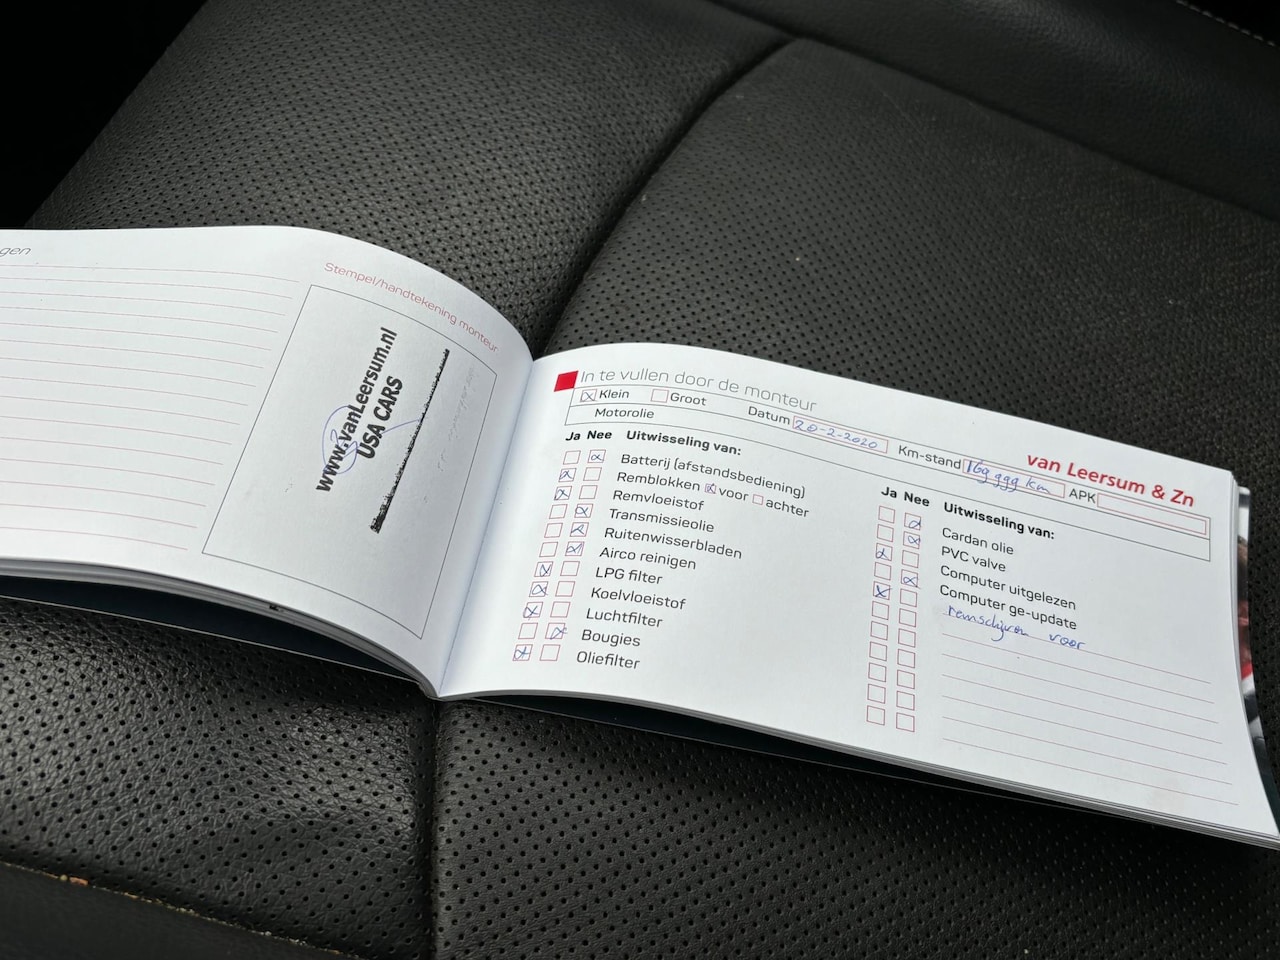 gen
Stempel/handtekening monteur
www.vanLeersum.nl
USA CARS
In te vullen door de monteur
van Leersum & Zn
Klein Groot Datum 20-2-2020 Km-stand 169999 km APK
Motorolie
Ja Nee Uitwisseling van:
Batterij (afstandsbediening)
Remblokken voor achter
Remvloeistof
Transmissieolie
Ruitenwisserbladen
Airco reinigen
LPG filter
Koelvloeistof
Luchtfilter
Bougies
Oliefilter
Ja Nee Uitwisseling van:
Cardan olie
PVC valve
Computer uitgelezen
Computer ge-update
remschijven voor